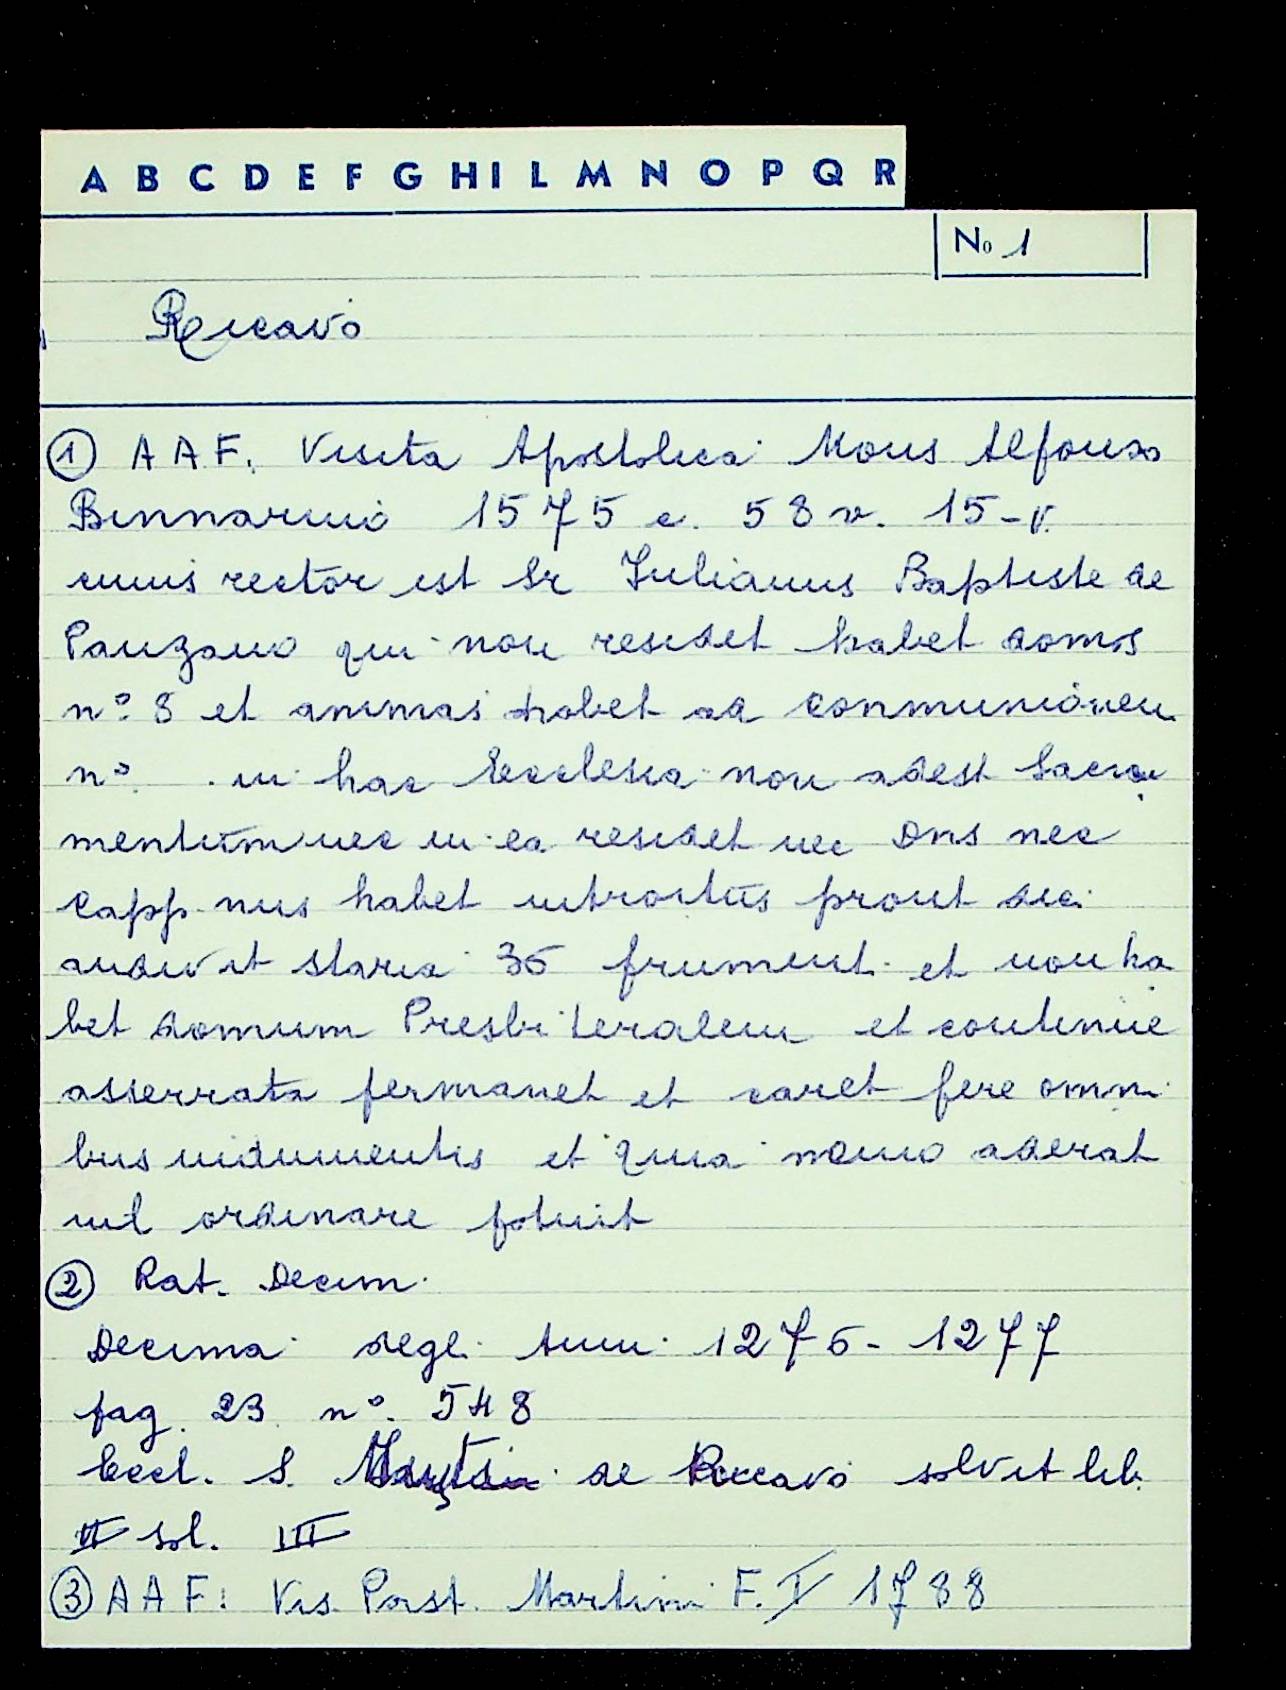 A B C D E F G H I L M N O P Q R
No 1
Recavo
1 A A F. Visita Apostolica Mons Alfonso
Binnarino 1575 c. 58 v. 15-V.
cuius rector est Sr Iulianus Baptiste de
Panzano qui non residet habet domos
n° 8 et animas habet ad conmunionem
n° . in hac Ecclesia non adest Sacra
mentum nec in ea residet nec Dns nec
Capp. nus habet introitus prout dici
audivit staria 36 frument. et non ha
bet domum Presbiteralem et continue
asserrata permanet et caret fere omni
bus indumentis et quia nemo aderat
nil ordinare potuit
2 Rat. Decim.
Decima degli Anni 1276-1277
pag. 23 n°. 548
Eccl. S. Martini de Reccavo solvit lib.
VI sol. III
3 A A F: Vis. Past. Martini F. V 1788